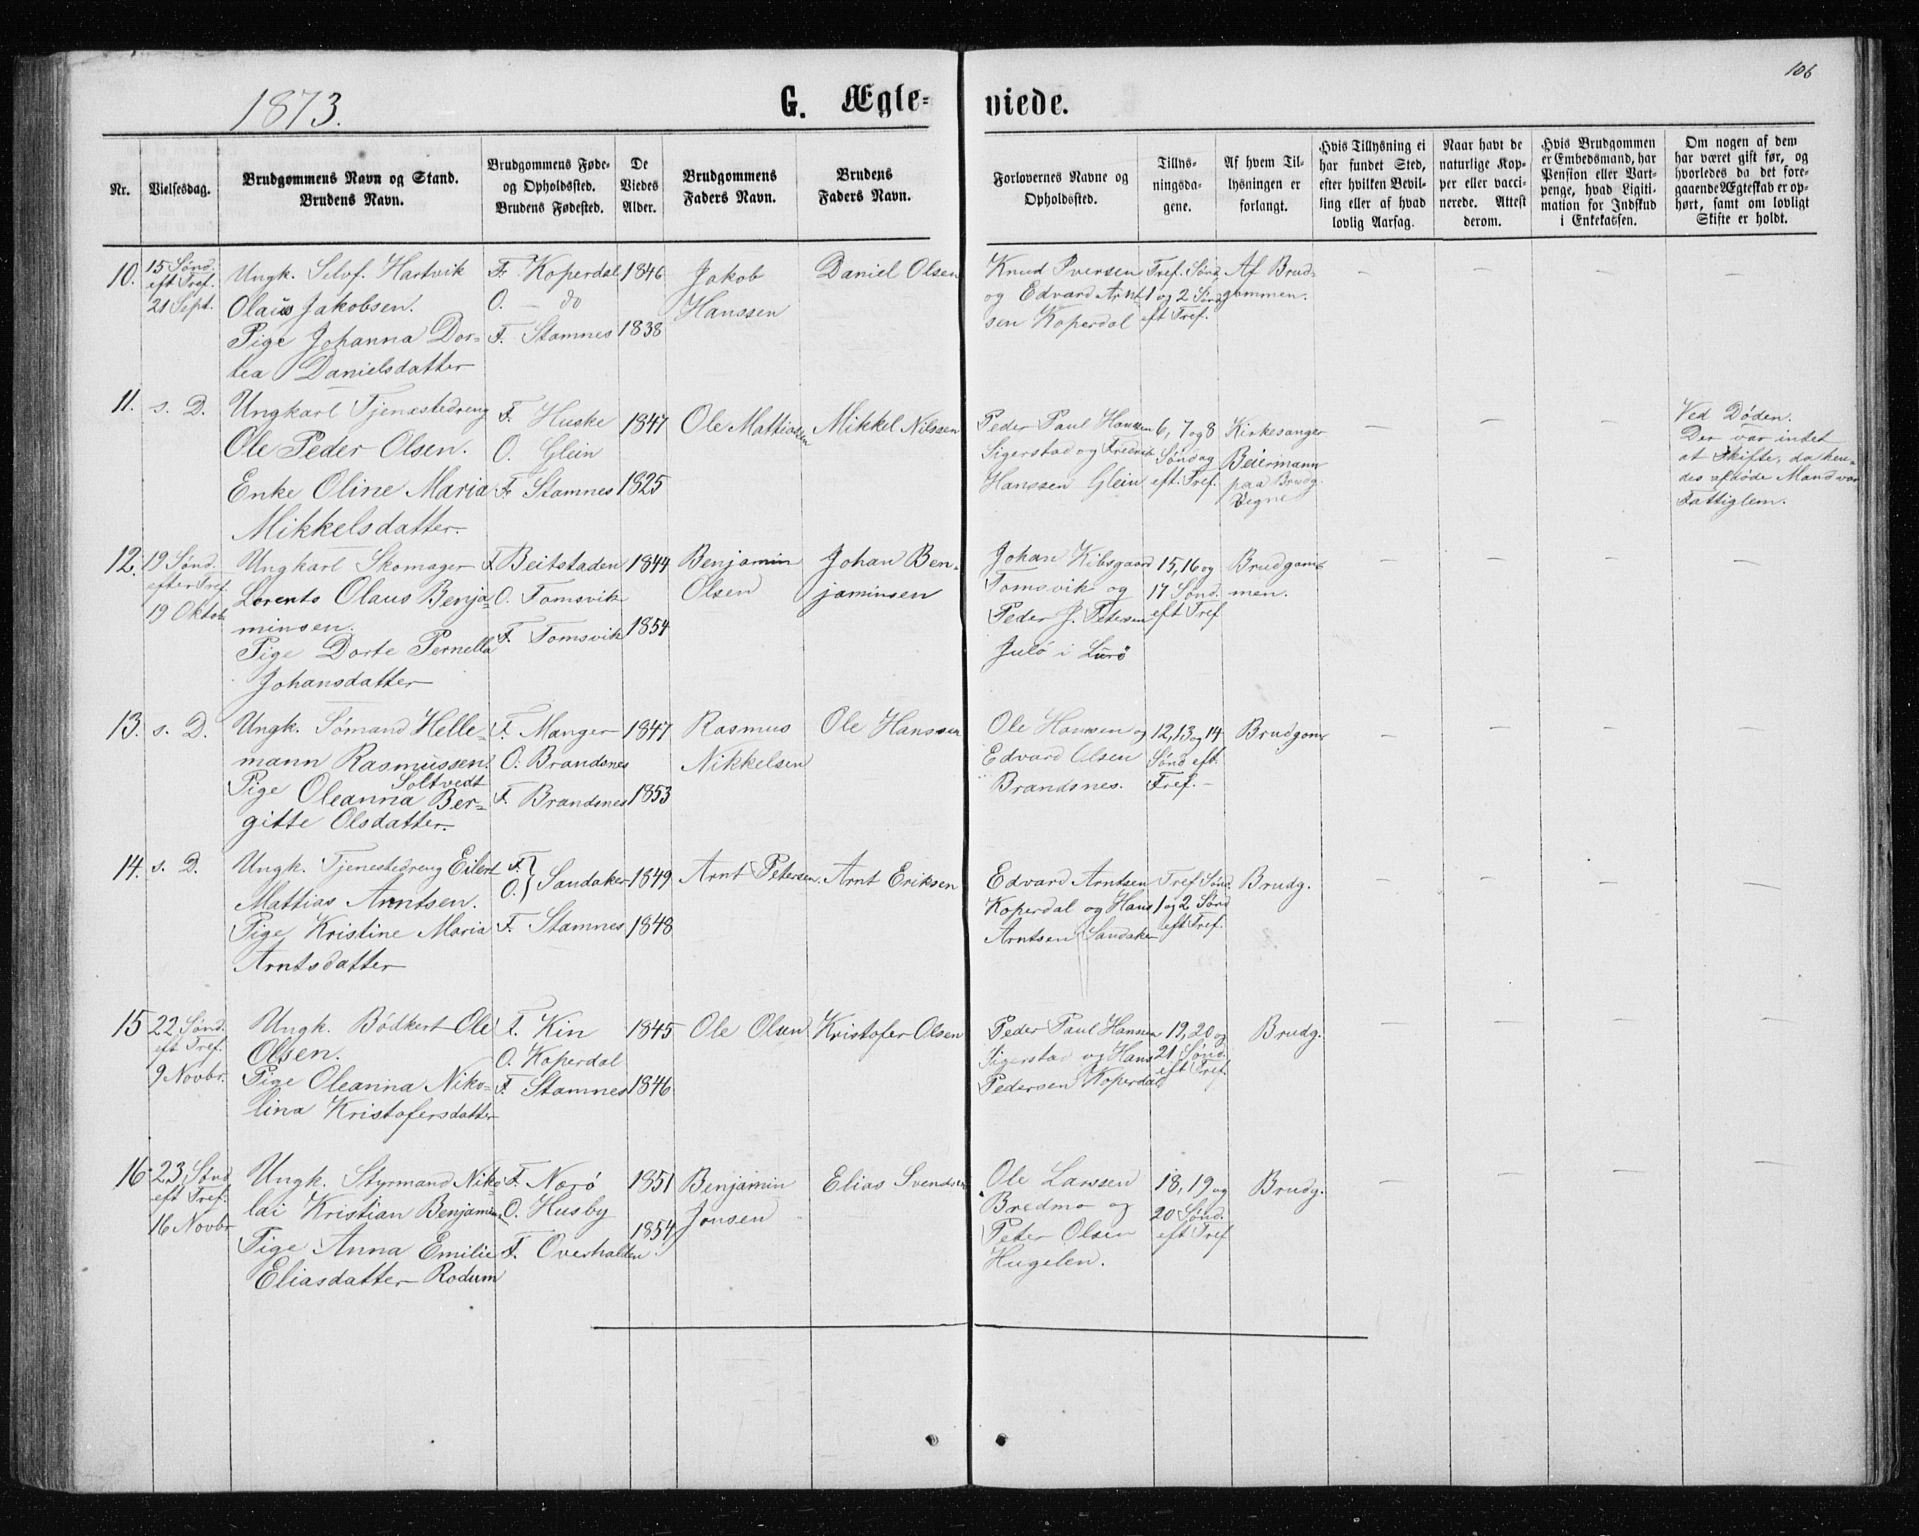 106
1873.
G. Ægte-
viede.
Nr.
Vielsesdag.
Brudgommens Navn og Stand.
Brudens Navn.
Brudgommens Føde-
og Opholdssted.
Brudens Fødested.
De
Viedes
Alder.
Brudgommens
Faders Navn.
Brudens
Faders Navn.
Forlovernes Navne og
Opholdssted.
Tillys-
ningsda-
gene.
Af hvem Til-
lysningen er
forlangt.
Hvis Tillysning ei
har fundet Sted,
efter hvilken Bevil-
ling eller af hvad
lovlig Aarsag.
Naar havt de
naturlige Kop-
per eller vacci-
nerede. Attest
derom.
Hvis Brudgommen
er Embedsmand, har
Pension eller Vart-
penge, hvad Ligiti-
mation for Indskud
i Enkekassen.
Om nogen af dem
har været gift før, og
hvorledes da det fore-
gaaende Ægteskab er op-
hørt, samt om lovligt
Skifte er holdt.
10.
15 Sønd.
eft Tref.
21 Sept.
Ungk. Selvf. Hartvik
Olaus Jakobsen.
Pige Johanna Dor-
tea Danielsdatter
F. Koperdal
O. – do
F. Stamnes
1846
1838
Jakob
Hanssen
Daniel Olsen
Knud Iversen
og Edvard Arnt-
sen Koperdal
Tref. Sønd
1 og 2 Sønd
eft Tref.
Af Brud-
gommen.
–
–
–
–
11.
s. D.
Ungkarl Tjenestedreng
Ole Peder Olsen.
Enke Oline Maria
Mikkelsdatter.
F. Huske
O. Glein
F. Stamnes
1847
1825
Ole Mattiassen
Mikkel Nilssen
Peder Paul Hanssen
Sigerstad og Fredrik
Hanssen Glein
6, 7 og 8
Søndag
eft. Tref.
Kirkesanger
Beiermann
paa Brudg.
Vegne
–
–
–
Ved Døden.
Der var intet
at Skifte, da hen-
des afdøde Mand var
Fattiglem.
12.
19 Sønd.
efter Tref.
19 Oktob.
Ungkarl Skomager
Lorents Olaus Benja-
minsen.
Pige Dorte Pernella
Johansdatter
F. Beitstaden
O. Tomsvik
F. Tomsvik
1844
1854
Benjamin
Olsen
Johan Ben-
jaminsen
Johan Kibsgaard
Tomsvik og
Peder J. Petersen
Julö i Lurö
15, 16 og
17 Sønd.
eft Tref
Brudgom-
men.
–
–
–
–
13.
s. D.
Ungk. Sømand Helle-
mann Rasmussen
Soltvedt
Pige Oleanna Ber-
gitte Olsdatter.
F. Manger
O. Brandsnes
F. Brandsnes
1847
1853
Rasmus
Nikkelsen
Ole Hanssen
Ole Hanssen og
Edvard Olsen
Brandsnes.
12, 13 og 14
Sønd eft.
Tref. –
Brudgom
–
–
–
–
14.
s. D.
Ungk. Tjenestedreng Eilert
Mattias Arntsen.
Pige Kristine Maria
Arntsdatter
F. }
O. } Sandaker
F. Stamnes
1849
1848
Arnt Petersen
Arnt Eriksen
Edvard Arntsen
Koperdal og Hans
Arntsen Sandaker
Tref Sønd.
1 og 2 Sønd
eft Tref.
Brudg.
–
–
–
–
15
22 Sønd.
eft Tref.
9 Novbr.
Ungk. Bödkert Ole
Olsen.
Pige Oleanna Niko-
lina Kristofersdatter
F. Kin
O. Koperdal
F. Stamnes
1845
1846
Ole Olsen
Kristofer Olsen
Peder Paul Hansen
Sigerstad og Hans
Pedersen Koperdal
19, 20 og
21 Sønd.
eft Tref.
Brudg.
–
–
–
–
16
23 Sønd
eft Tref.
16 Novbr
Ungk. Styrmand Niko-
lai Kristian Benjamins.
Pige Anna Emilie
Eliasdatter Rodum
F. Nærö
O. Husby
F. Overhalden
1851
1854
Benjamin
Jonsen
Elias Svendsen
Ole Larssen
Bredmo og
Peter Olsen
Hugelen.
18, 19 og
20 Sønd.
eft Tref
Brudg.
–
–
–
–